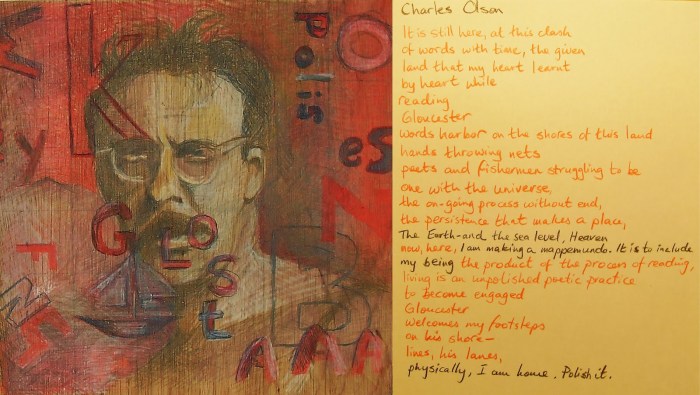 polis
O
es
N
M
K
Y
G
L
O
S
t
F
N
S
A
A
A
A
Charles Olson
It is still here, at this clash
of words with time, the given
land that my heart learnt
by heart while
reading
Gloucester
words harbor on the shores of this land
hands throwing nets
poets and fishermen struggling to be
one with the universe,
the on-going process without end,
the persistence that makes a place,
The Earth-and the sea level, Heaven
now, here, I am making a mappemundo. It is to include
my being the product of the process of reading.
living is an unpolished poetic practice
to become engaged
Gloucester
welcomes my footsteps
on his shore-
lines, his lanes,
physically, I am home. Polish it.